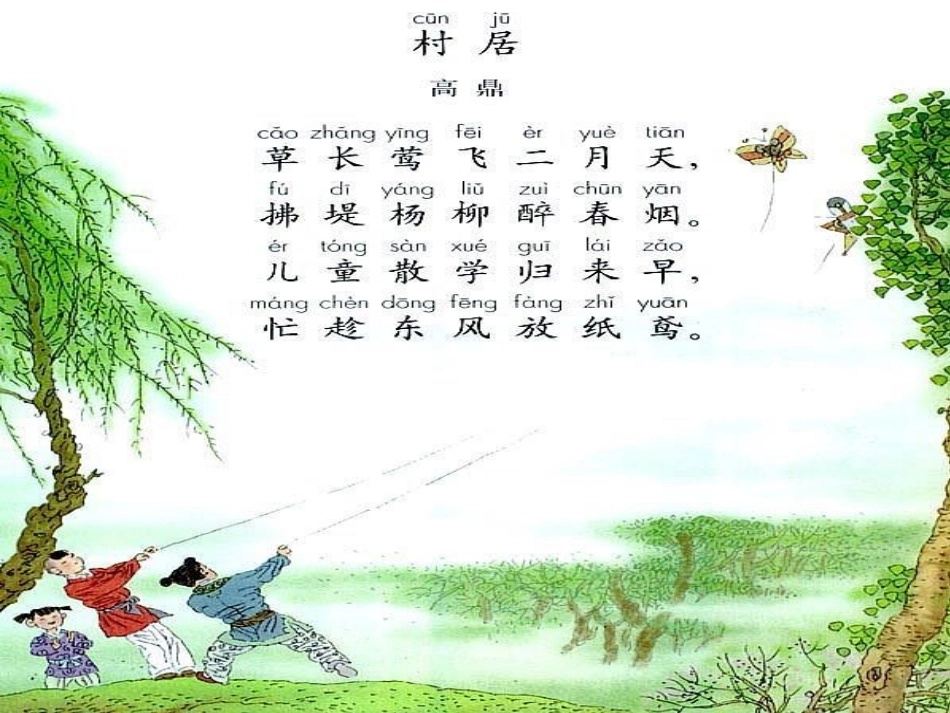 cūn jū
村 居
高 鼎
cǎo zhǎng yīng fēi èr yuè tiān
草 长 莺 飞 二 月 天，
fú dī yáng liǔ zuì chūn yān
拂 堤 杨 柳 醉 春 烟。
ér tóng sàn xué guī lái zǎo
儿 童 散 学 归 来 早，
máng chèn dōng fēng fàng zhǐ yuān
忙 趁 东 风 放 纸 鸢。